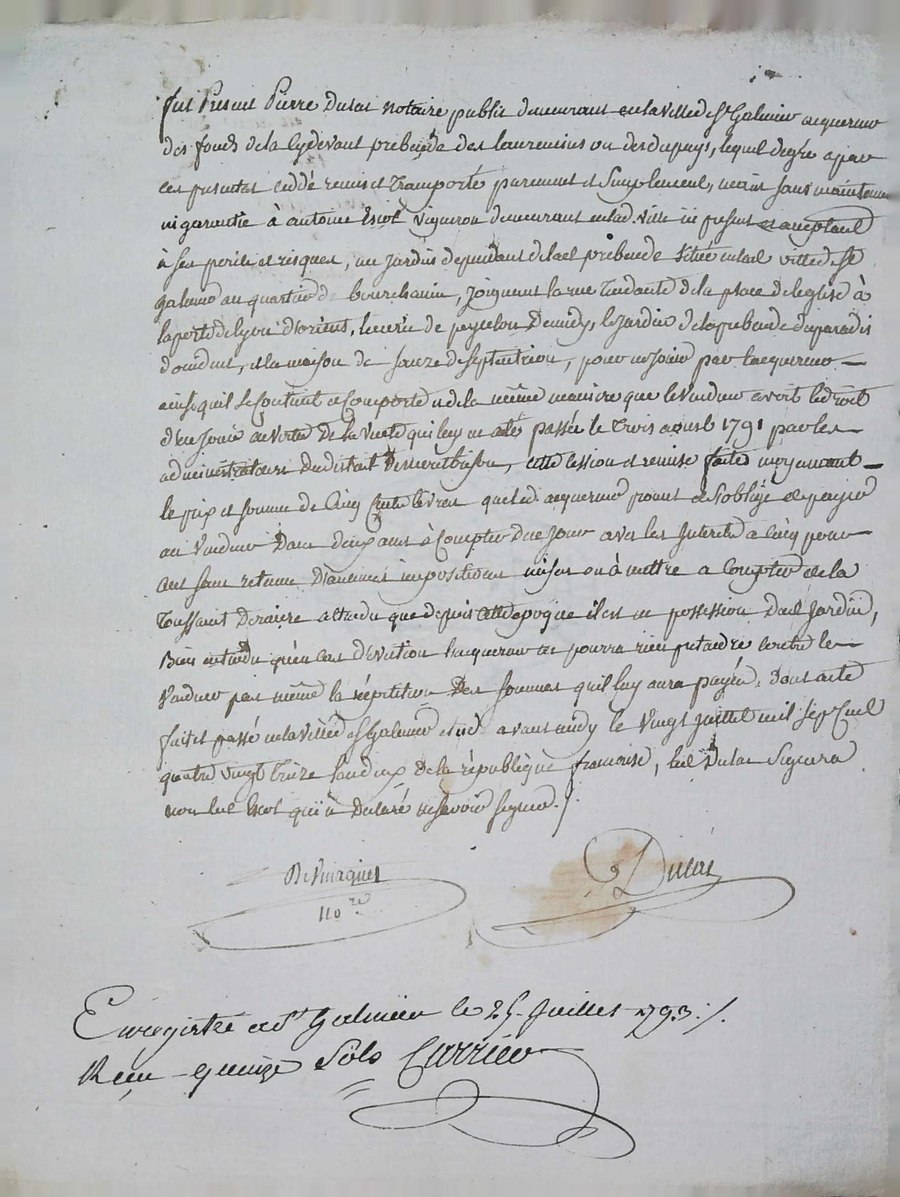 fut Present Pierre Dulac notaire public demeurant en la ville de St Galmier acquereur
des fonds de la cydevant prebende des laurensins ou des dupuys, lequel degré a par
ces presentes ceddé remis et transporté purement et simplement, mais sans maintenue
ni garantie à antoine Escot vigneron demeurant en lad. ville ici present et acceptant
à ses perils et risques, un jardin dependant de lad prebende situé en lad ville de St
galmier au quartier de bourchanin, joignant la rue tendante de la place de leglise à
la porte de lyon d'orient, de midy, le jardin de la prebende du paradis
d'occident, et la maison de de septentrion, pour en jouir par lacquereur
ainsi quil se contient et comporte et de la même maniere que le vendeur avoit le droit
d'en jouir au vertu de la vente qui luy en a été passée le trois aoust 1791 par les
administrateurs du district de montbrison, cette cession et remise faite moyennant
le prix et somme de cinq cents livres que led. acquereur promet et s'oblige de payer
au vendeur dans deux ans à compter de ce jour avec les interets a cinq pour
sans retenue d'aucunes impositions mises ou à mettre a compter de la
Toussaint derniere attendu que depuis cette epoque il est en possession dud jardin,
Bien entendu qu'en cas d'eviction lacquereur ne pourra rien pretendre contre le
vendeur pas même la répétition des sommes quil luy aura payées, dont acte
fait et passé en la ville de St Galmier avant midy le vingt juillet mil sept cent
quatre vingt treize l'an deux de la république francoise, led Dulac signera
non led Escot qui a declaré ne savoir signer ./.
Dulac
no.re
Enregistré a St Galmier le 25 Juillet 1793 ./.
Reçu quinze Sols Carrier